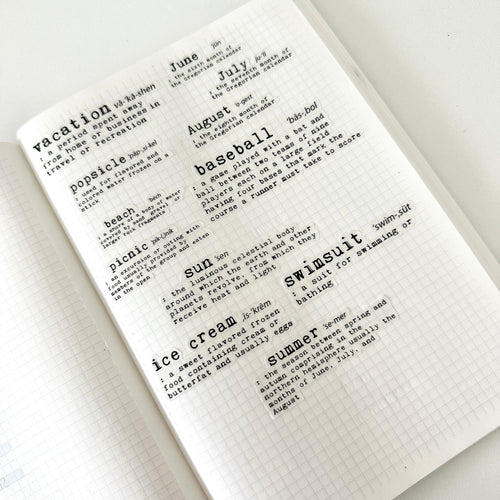 vacation vā-'kā-shen
: a period spent away
from home or business in
travel or recreation
June 'jün
: the sixth month of
the Gregorian calendar
July
: the seventh month of
the Gregorian calendar
August
: the eighth month of
the Gregorian calendar
popsicle
: used for flavored and
colored water frozen on a
stick
baseball 'bās-,bol
: a game played with a bat and
ball between two teams of nine
players each on a large field
having four bases that mark the
course a runner must take to score
beach
: a shore of a body of water
covered by sand, gravel, or
larger rock fragments
picnic
: an excursion or outing with
food usually provided by
members of the group and eaten
in the open
sun 'sen
: the luminous celestial body
around which the earth and other
planets revolve, from which they
receive heat and light
swimsuit 'swim-,süt
: a suit for swimming or
bathing
ice cream ,īs-'krēm
: a sweet flavored frozen
food containing cream or
butterfat and usually eggs
summer 'se-mer
: the season between spring and
autumn comprising in the
northern hemisphere usually the
months of June, July, and
August